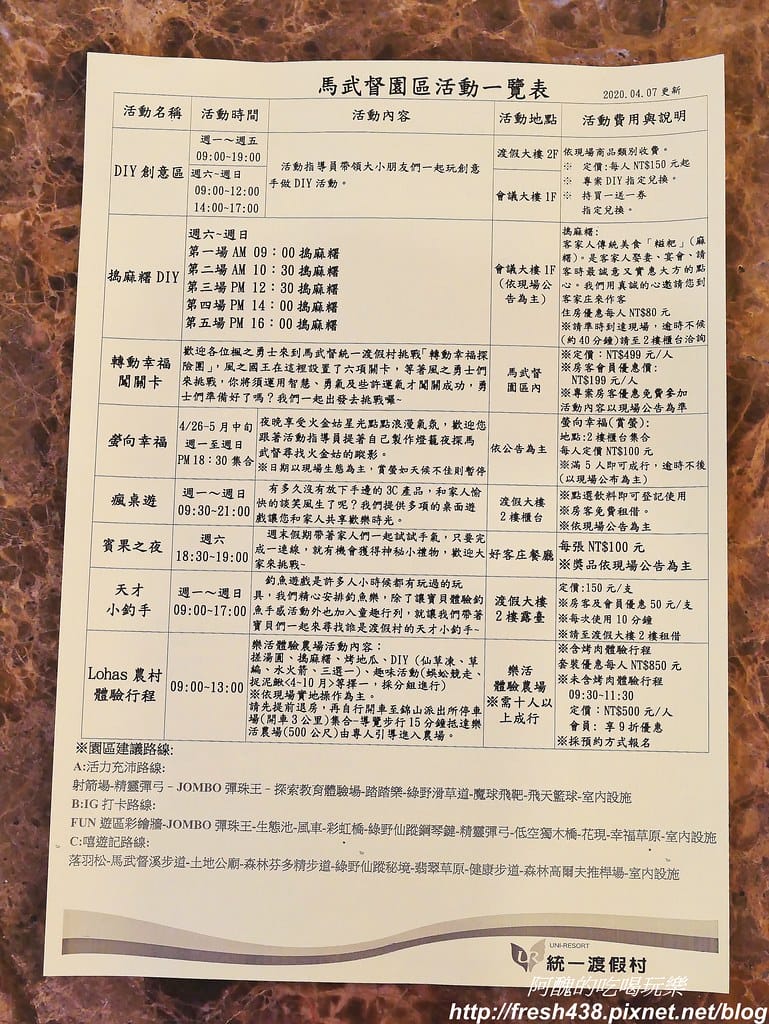 馬武督園區活動一覽表
2020.04.07 更新
活動名稱 活動時間 活動內容 活動地點 活動費用與說明
DIY 創意區
週一～週五
09:00~19:00
週六~週日
09:00~12:00
14:00~17:00
活動指導員帶領大小朋友們一起玩創意
手做 DIY 活動。
渡假大樓 2F
會議大樓 1F
依現場商品類別收費。
※ 定價:每人 NT$150 元起
※ 專案 DIY 指定兌換。
※ 持買一送一券
指定兌換。
搗麻糬 DIY
週六~週日
第一場 AM 09：00 搗麻糬
第二場 AM 10：30 搗麻糬
第三場 PM 12：30 搗麻糬
第四場 PM 14：00 搗麻糬
第五場 PM 16：00 搗麻糬
會議大樓 1F
(依現場公
告為主)
搗麻糬:
客家人傳統美食「糍粑」(麻
糬)。是客家人娶妻、宴會、請
客時最誠意又實惠大方的點
心。我們用真誠的心邀請您到
客家庄來作客
住房優惠每人 NT$80 元
※請準時到達現場，逾時不候
(約 40 分鐘)請至 2 樓櫃台洽詢
轉動幸福
闖關卡
歡迎各位楓之勇士來到馬武督統一渡假村挑戰「轉動幸福探
險團」，風之國王在這裡設置了六項關卡，等著風之勇士們
來挑戰，你將須運用智慧、勇氣及些許運氣才闖關成功，勇
士們準備好了嗎？我們一起出發去挑戰囉~
馬武督
園區內
※定價：NT$499 元/人
※房客會員優惠價:
NT$199 元/人
※專案房客優惠免費參加
活動內容以現場公告為準
螢向幸福
4/26~5 月中旬
週一至週日
PM 18：30 集合
夜晚享受火金姑星光點點浪漫氣氛，歡迎您
跟著活動指導員提著自己製作燈籠夜探馬
武督尋找火金姑的蹤影。
※日期以現場生態為主，賞螢如天候不佳則暫停
依公告為主
螢向幸福(賞螢):
地點:2 樓櫃台集合
每人定價 NT$100 元
※滿 5 人即可成行，逾時不後
(以現場公布為主)
瘋桌遊
週一～週日
09:30~21:00
有多久沒有放下手邊的 3C 產品，和家人愉
快的談笑風生了呢？我們提供多項的桌面遊
戲讓您和家人共享歡樂時光。
渡假大樓
2 樓櫃台
※點選飲料即可登記使用
※房客免費租借。
※依現場公告為主
賓果之夜
週六
18:30~19:00
週末假期帶著家人們一起試試手氣，只要完
成一連線，就有機會獲得神秘小禮物，歡迎大
家來挑戰~
好客庄餐廳
每張 NT$100 元
※獎品依現場公告為主
天才
小釣手
週一～週日
09:00~17:00
釣魚遊戲是許多人小時候都有玩過的玩
具，我們精心安排釣魚樂，除了讓寶貝體驗釣
魚手感活動外也加入童趣行列，就讓我們帶著
寶貝們一起來尋找誰是渡假村的天才小釣手~
渡假大樓
2 樓露臺
定價:150 元/支
※房客及會員優惠 50 元/支
※每次使用 10 分鐘
※請至渡假大樓 2 樓租借
Lohas 農村
體驗行程
09:00~13:00
樂活體驗農場活動內容：
搓湯圓、搗麻糬、烤地瓜、DIY (仙草凍、草
編、水火箭、三選一)、趣味活動(蜈蚣競走、
捉泥鰍<4~10 月>等擇一，採分組進行)
※依現場實地操作為主。
請先提前退房，再自行開車至錦山派出所停車
場(開車 3 公里)集合-導覽步行 15 分鐘抵達樂
活農場(500 公尺)由專人引導進入農場。
樂活
體驗農場
※需十人以
上成行
※含烤肉體驗行程
套裝優惠每人 NT$850 元
※未含烤肉體驗行程
09:30~11:30
定價：NT$500 元/人
會員：享 9 折優惠
※採預約方式報名
※園區建議路線:
A:活力充沛路線:
射箭場-精靈彈弓－JOMBO 彈珠王－探索教育體驗場-踏踏樂-綠野滑草道-魔球飛靶-飛天籃球-室內設施
B:IG 打卡路線:
FUN 遊區彩繪牆-JOMBO 彈珠王-生態池-風車-彩虹橋-綠野仙蹤鋼琴鍵-精靈彈弓-低空獨木橋-花現-幸福草原-室內設施
C:嘻遊記路線:
落羽松-馬武督溪步道-土地公廟-森林芬多精步道-綠野仙蹤秘境-翡翠草原-健康步道-森林高爾夫推桿場-室內設施
UNI-RESORT
統一渡假村
阿醜的吃喝玩樂
http://fresh438.pixnet.net/blog